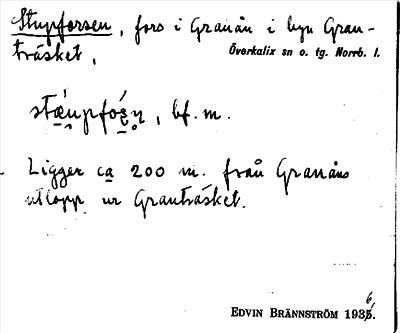 Stupforsen, fors i Granån i byn Gran-
träsket,
Överkalix sn o. tg. Norrb. l.
bf. m.
Ligger ca 200 m. från Granåns
utlopp ur Granträsket.
EDVIN BRÄNNSTRÖM 1936.